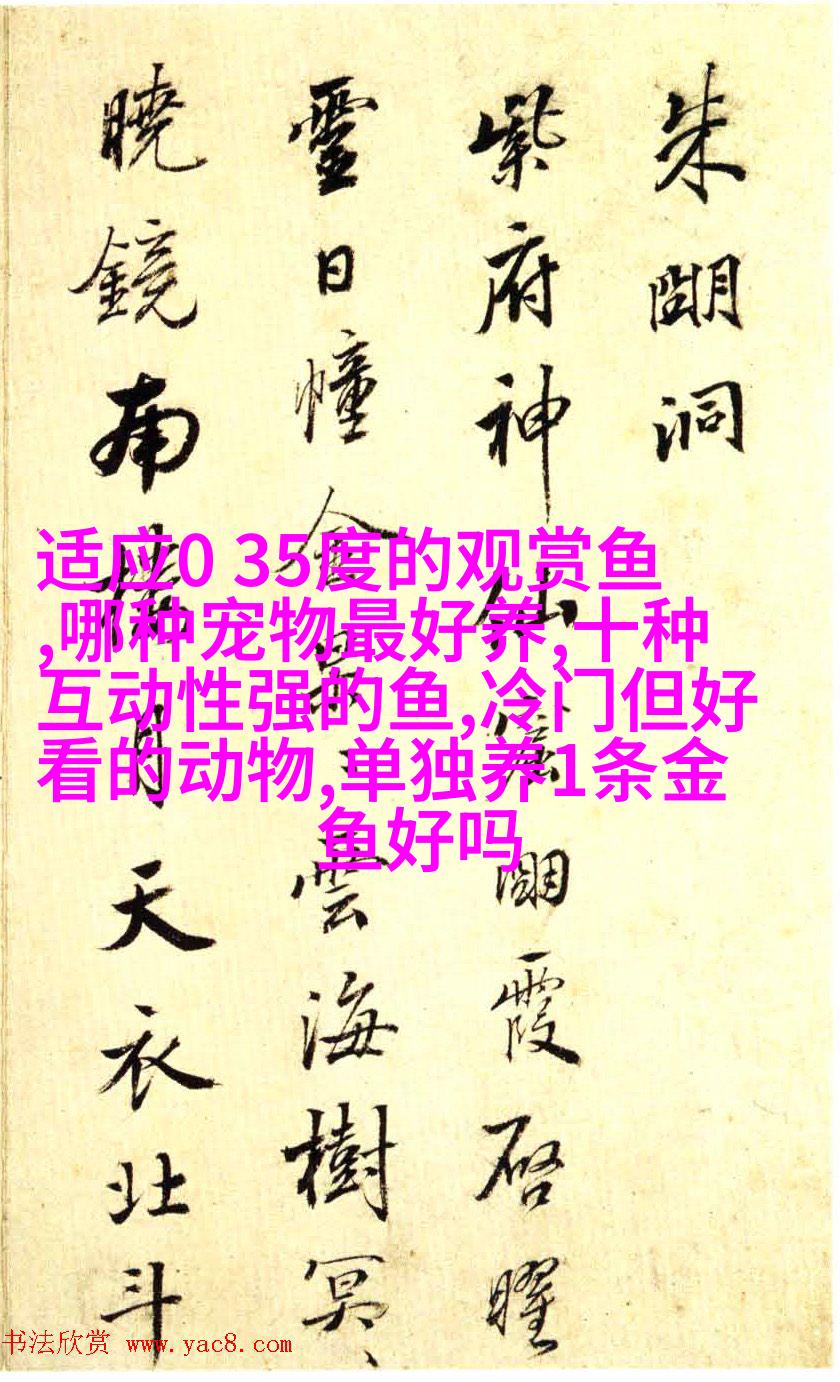 朱朙洞
紫府神仙窟朙霞启曜
霊日幢金晃、雲海樹冥、
曉鏡南月天衣北斗
适应0 35度的观赏鱼
,哪种宠物最好养,十种
互动性强的鱼,冷门但好
看的动物,单独养1条金
鱼好吗
书法欣赏 www.yac8.com